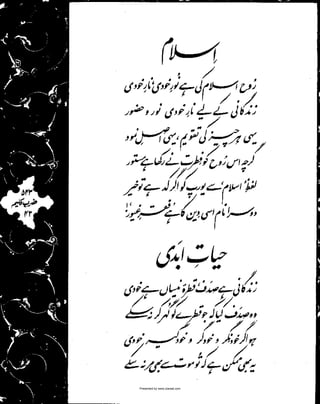 اسلام
روح اسلام کی ہے نورِ خودی، نارِ خودی
زندگانی کے لیے نارِ خودی نور و حضور
یہی ہر چیز کی تقویم، یہی اصلِ نمود
گرچہ اس روح کو فطرت نے رکھا ہے مستور
لفظ 'اسلام' سے یورپ کو اگر کد ہے تو خیر
دوسرا نام اسی دین کا ہے 'فقرِ غیور'!
۵۴۳
ضربِ کلیم
۴۳
حیاتِ ابدی
زندگانی ہے صدف، قطرۂ نیساں ہے خودی
وہ صدف کیا کہ جو قطرے کو گہر کر نہ سکے
ہو اگر خودنگر و خودگر و خودگیر خودی
یہ بھی ممکن ہے کہ تو موت سے بھی مر نہ سکے
Presented by www.ziaraat.com